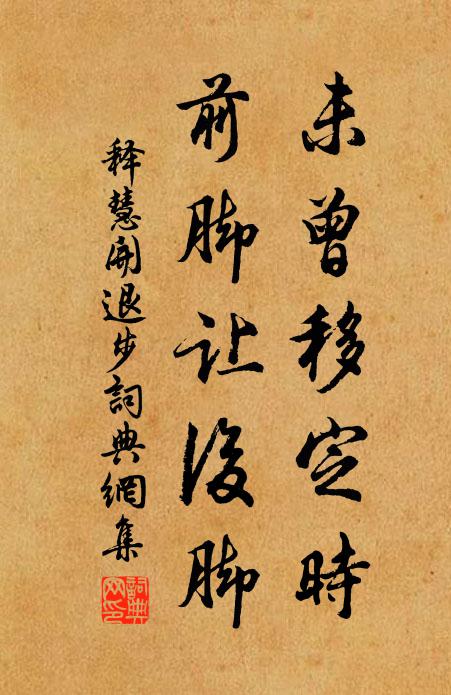 未曾移定時
前脚让後脚
释慧開退步詞典網集
詞典网印